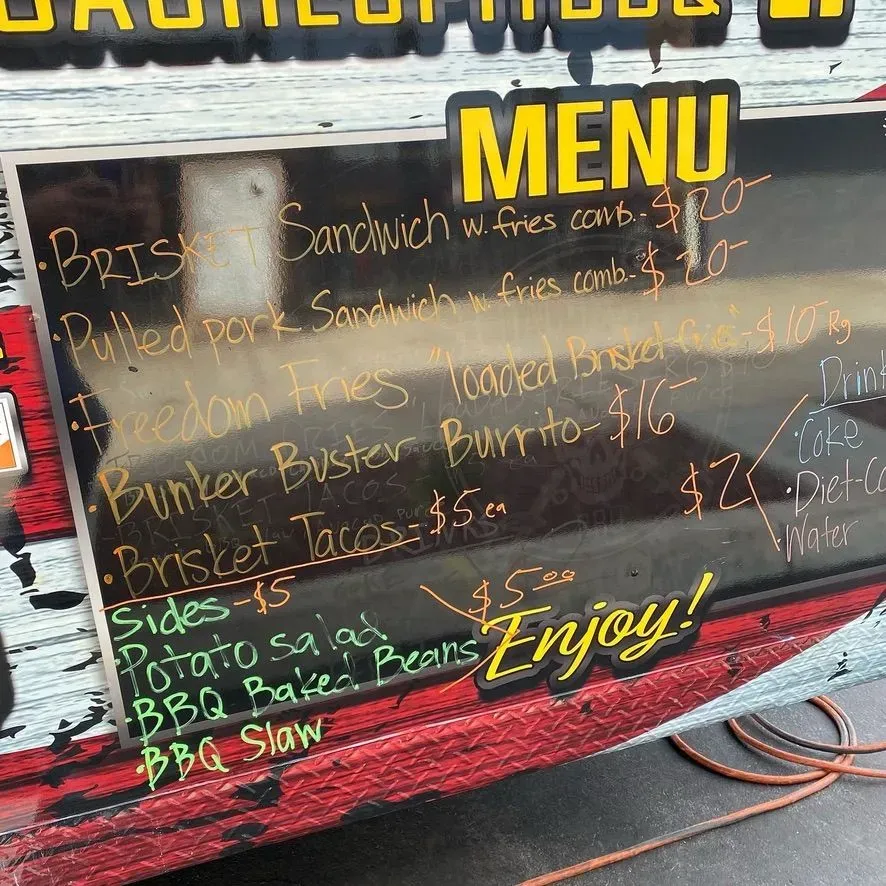 MENU
·BRISKET Sandwich w. fries comb.- $20-
·Pulled pork Sandwich w. fries comb.- $20-
·Freedom Fries "loaded Brisket fries"-$10- Rg
·Bunker Buster Burrito- $16-
·Brisket Tacos-$5 ea
Drin
$2
·Coke
·Diet-Co
·Water
Sides-$5
$5.00
·Potato salad
·BBQ Baked Beans
·BBQ Slaw
Enjoy!